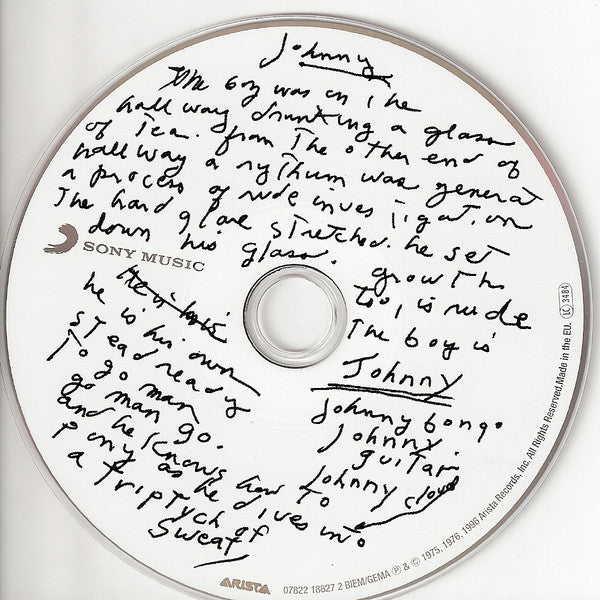 Johnny
The boy was in The
hall way drinking a glass
of Tea. from The other end of
hall way a rythum was generat
a process of rude investigation
The hard stretched. he set
down his glass. growth
too, is rude
The boy is
Johnny
SONY MUSIC
he is his own
stead ready
To go man
go man go.
and he knows how to
pony as he gives into
a Triptych of
Sweat
Johnny bongo
Johnny
guitar
Johnny cloud
LC 3484
ARISTA
07822 18827 2 BIEM/GEMA ℗ & © 1975, 1976, 1996 Arista Records, Inc. All Rights Reserved.Made in the EU.